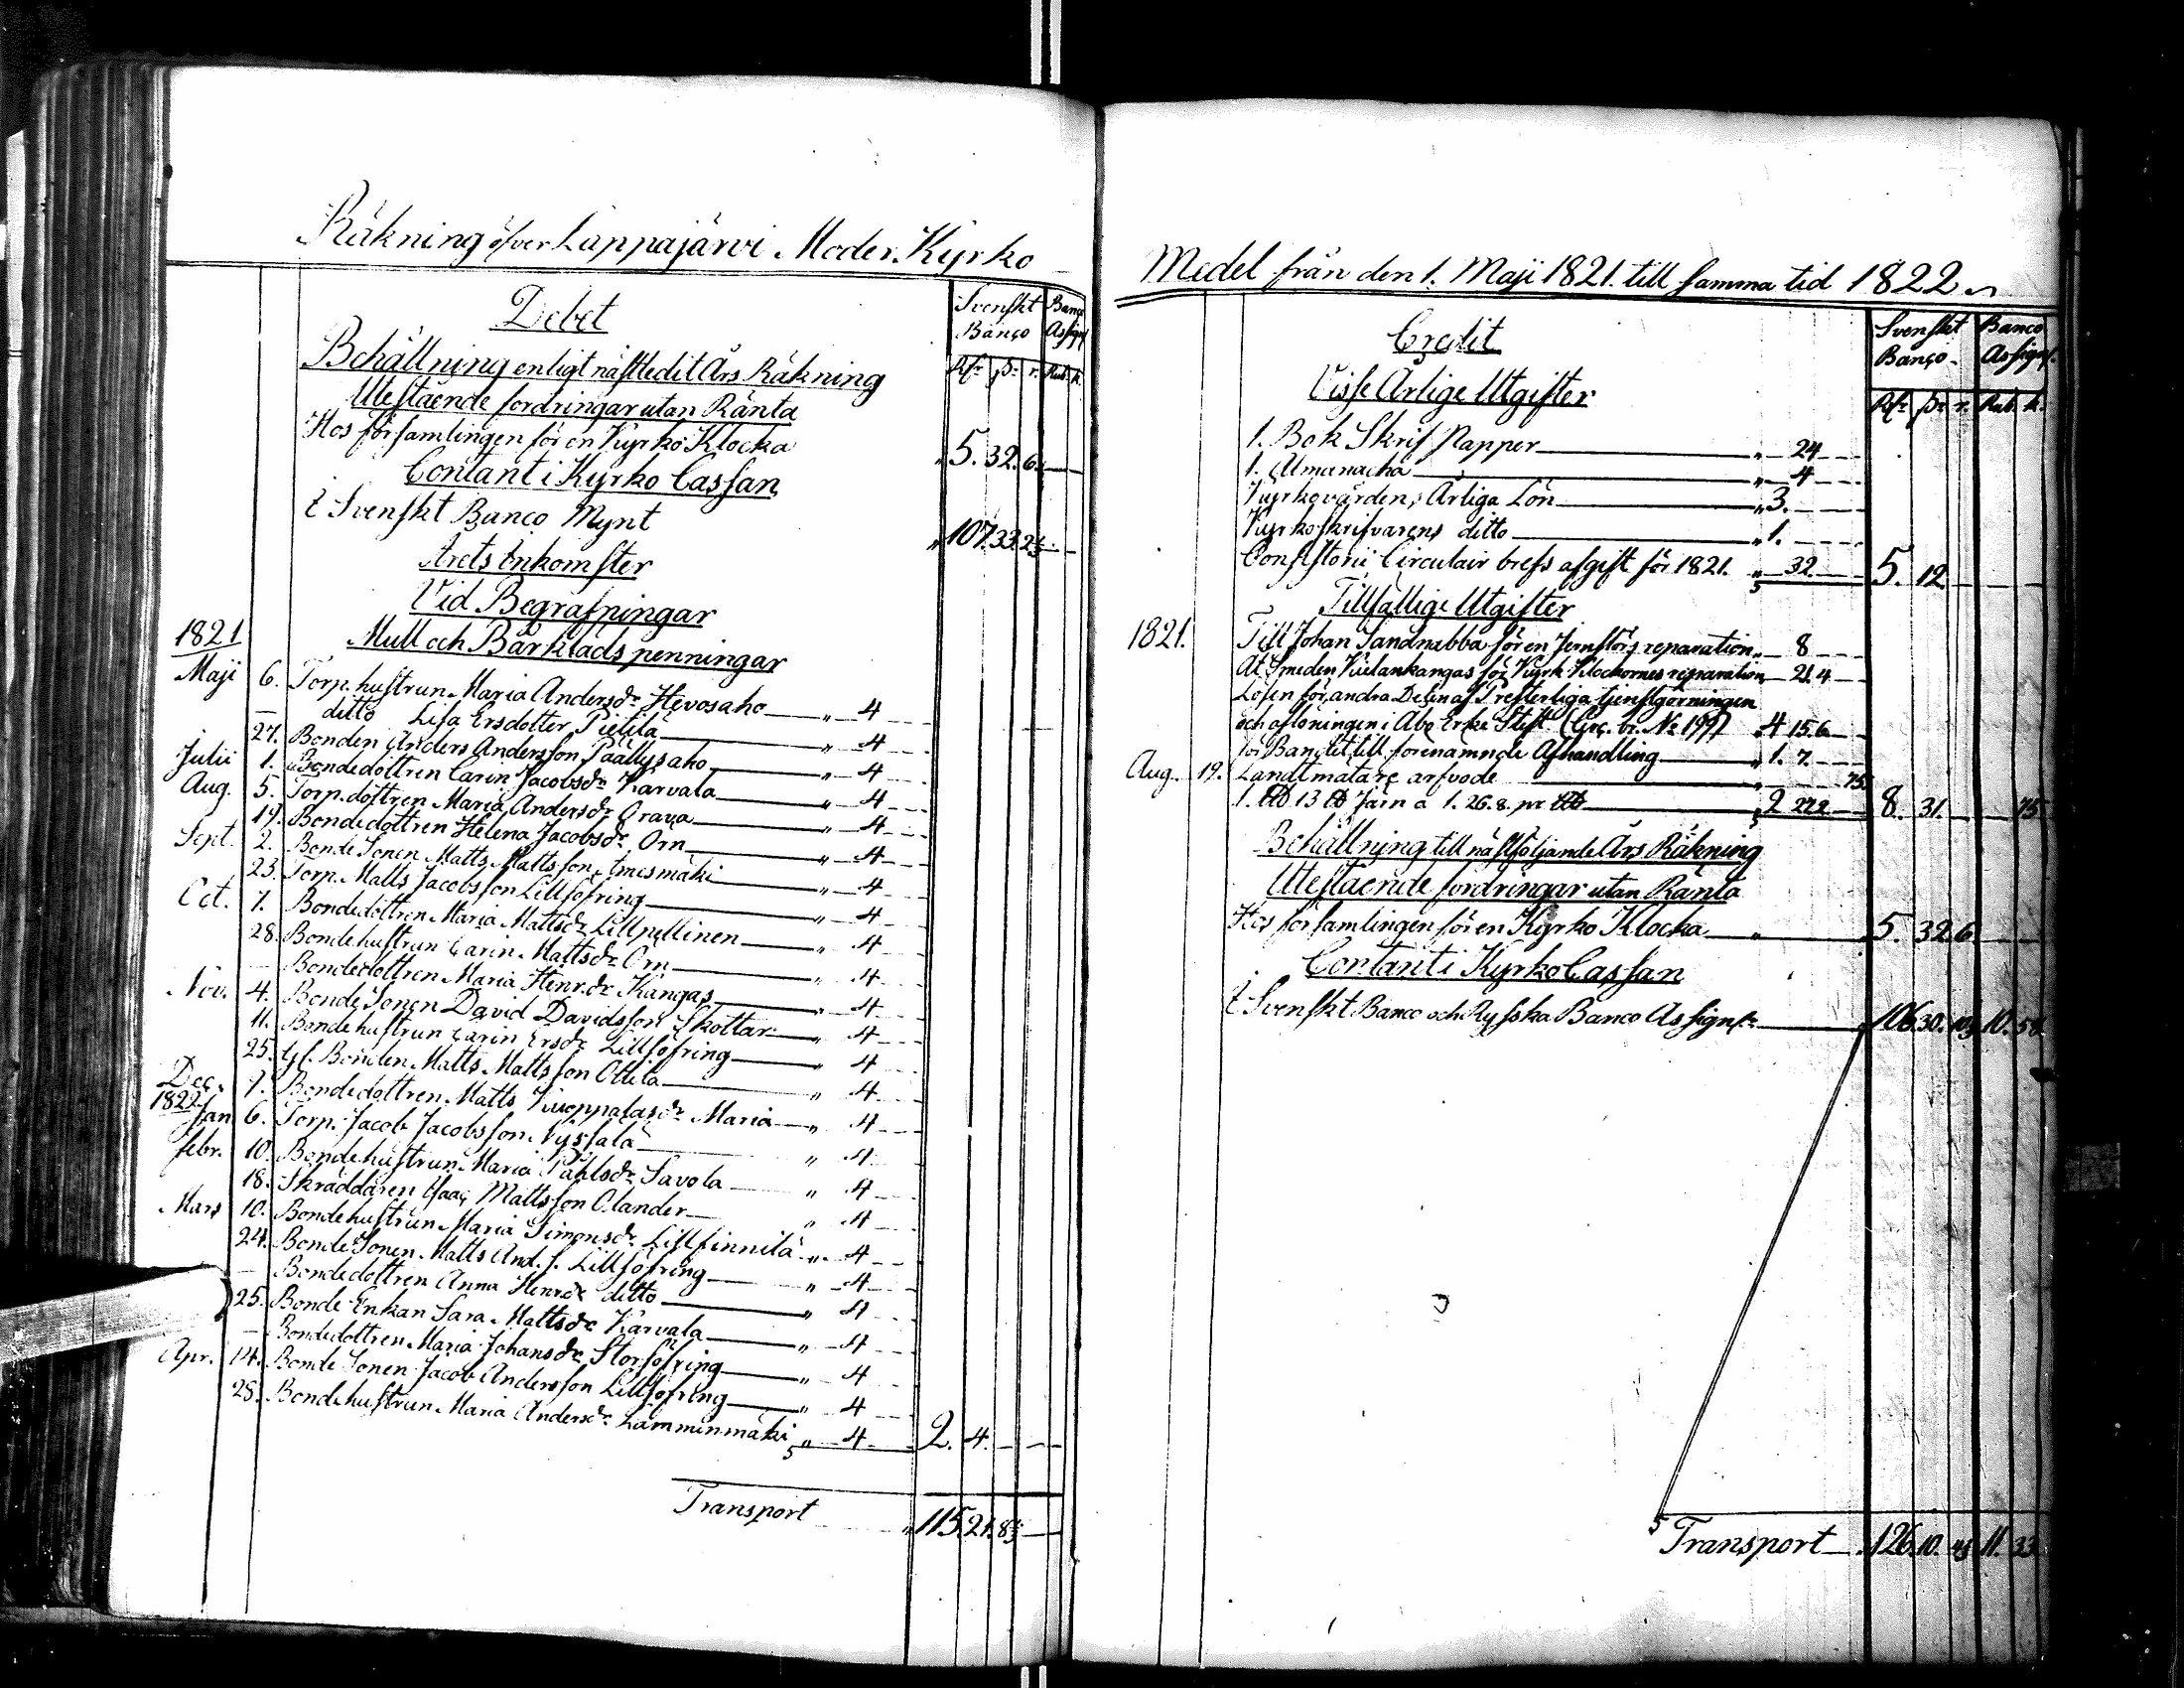 Räkning öfver Lappajärvi Moder Kyrko
Debet
Svenskt Banco
Banco Assign
Behållning enligt nästledit Års Räkning
Rdr sk. r. Rub. k.
Utestående fordringar utan Ränta
Hos församlingen för en Kyrko Klocka " 5. 32. 6.
Contant i Kyrko Cassan
i Svenskt Banco Mynt " 107. 33. 2
Årets Inkomster
Vid Begrafningar
1821 Mull och Bårkläds penningar
Maji 6. Torp. hustrun Maria Andersdr Hevosaho " 4
— ditto Lisa Ersdotter Pietilä " 4
27. Bonden Anders Andersson Päällysaho " 4
Julii 1. Bondedottren Carin Jacobsdr Karvala " 4
Aug. 5. Torp. dottren Maria Andersdr Orava " 4
19. Bondedottren Helena Jacobsdr Orn " 4
Sept. 2. Bonde Sonen Matts Mattsson 4
23. Torp. Matts Jacobsson Lillsöfring " 4
Oct. 7. Bondedottren Maria Mattsdr Lillpellinen " 4
28. Bondehustrun Carin Mattsdr Orn " 4
— Bondedottren Maria Henr.dr Kangas " 4
Nov. 4. Bonde Sonen David Davidsson Skottar " 4
11. Bondehustrun Carin Ersdr Lillsöfring " 4
25. Gl. Bonden Matts Mattsson Ottila " 4
Dec. 7. Bondedottren Matts Kuoppalasdr Maria " 4
1822 Jan 6. Torp. Jacob Jacobsson 4
Febr. 10. Bondehustrun Maria Påhlsdr Savola " 4
18. Skräddaren Isaac Mattsson Olander " 4
Mars 10. Bondehustrun Maria Simonsdr Lillfinnilä " 4
24. Bonde Sonen Matts And. s. Lillsöfring " 4
— Bondedottren Anna Henr.dr ditto " 4
25. Bonde Enkan Sara Mattsdr Karvala " 4
— Bondedottren Maria Johansdr Storsöfring " 4
Apr. 14. Bonde Sonen Jacob Andersson Lillsöfring " 4
28. Bondehustrun Maria Andersdr Lamminmäki " 4 2. 4.
Transport " 115. 21. 8
Medel från den 1. Maji 1821. till samma tid 1822
Credit
Svenskt Banco
Banco Assign.
Visse Årlige Utgifter
Rdr sk. r. Rub. k.
1. Bok Skrif Papper " 24
1. Almanacha " 4
Kyrkovärdens Årliga Lön " 3.
Kyrkoskrifvarens ditto " 1.
Consistorii Circulair brefs afgift för 1821. " 32 5. 12
Tillfällige Utgifter
1821. Till Johan Sandnabba för en Jernstörs reparation " 8
Åt Smeden Kiilankangas för Kyrk Klockornes reparation 21.4
Lösen för andra Delen af Presterliga tjenstgörningen
och aflöningen i Åbo Erke Stift (Circ. br. No 199) 4 15 6
för Bandet till förenämnde Afhandling " 1. 7.
Aug. 19. Landtmätare arfvode 75
1. 13 Järn a 1. 26. 8. pr 2 22 2 8. 31. 75
Behållning till nästföljande Års Räkning
Utestående fordringar utan Ränta
Hos församlingen för en Kyrko Klocka " 5. 32 6
Contant i Kyrko Cassan
i Svenskt Banco och Ryska Banco Assignr 106. 30. 10. 58
Transport 126. 10. 11. 33